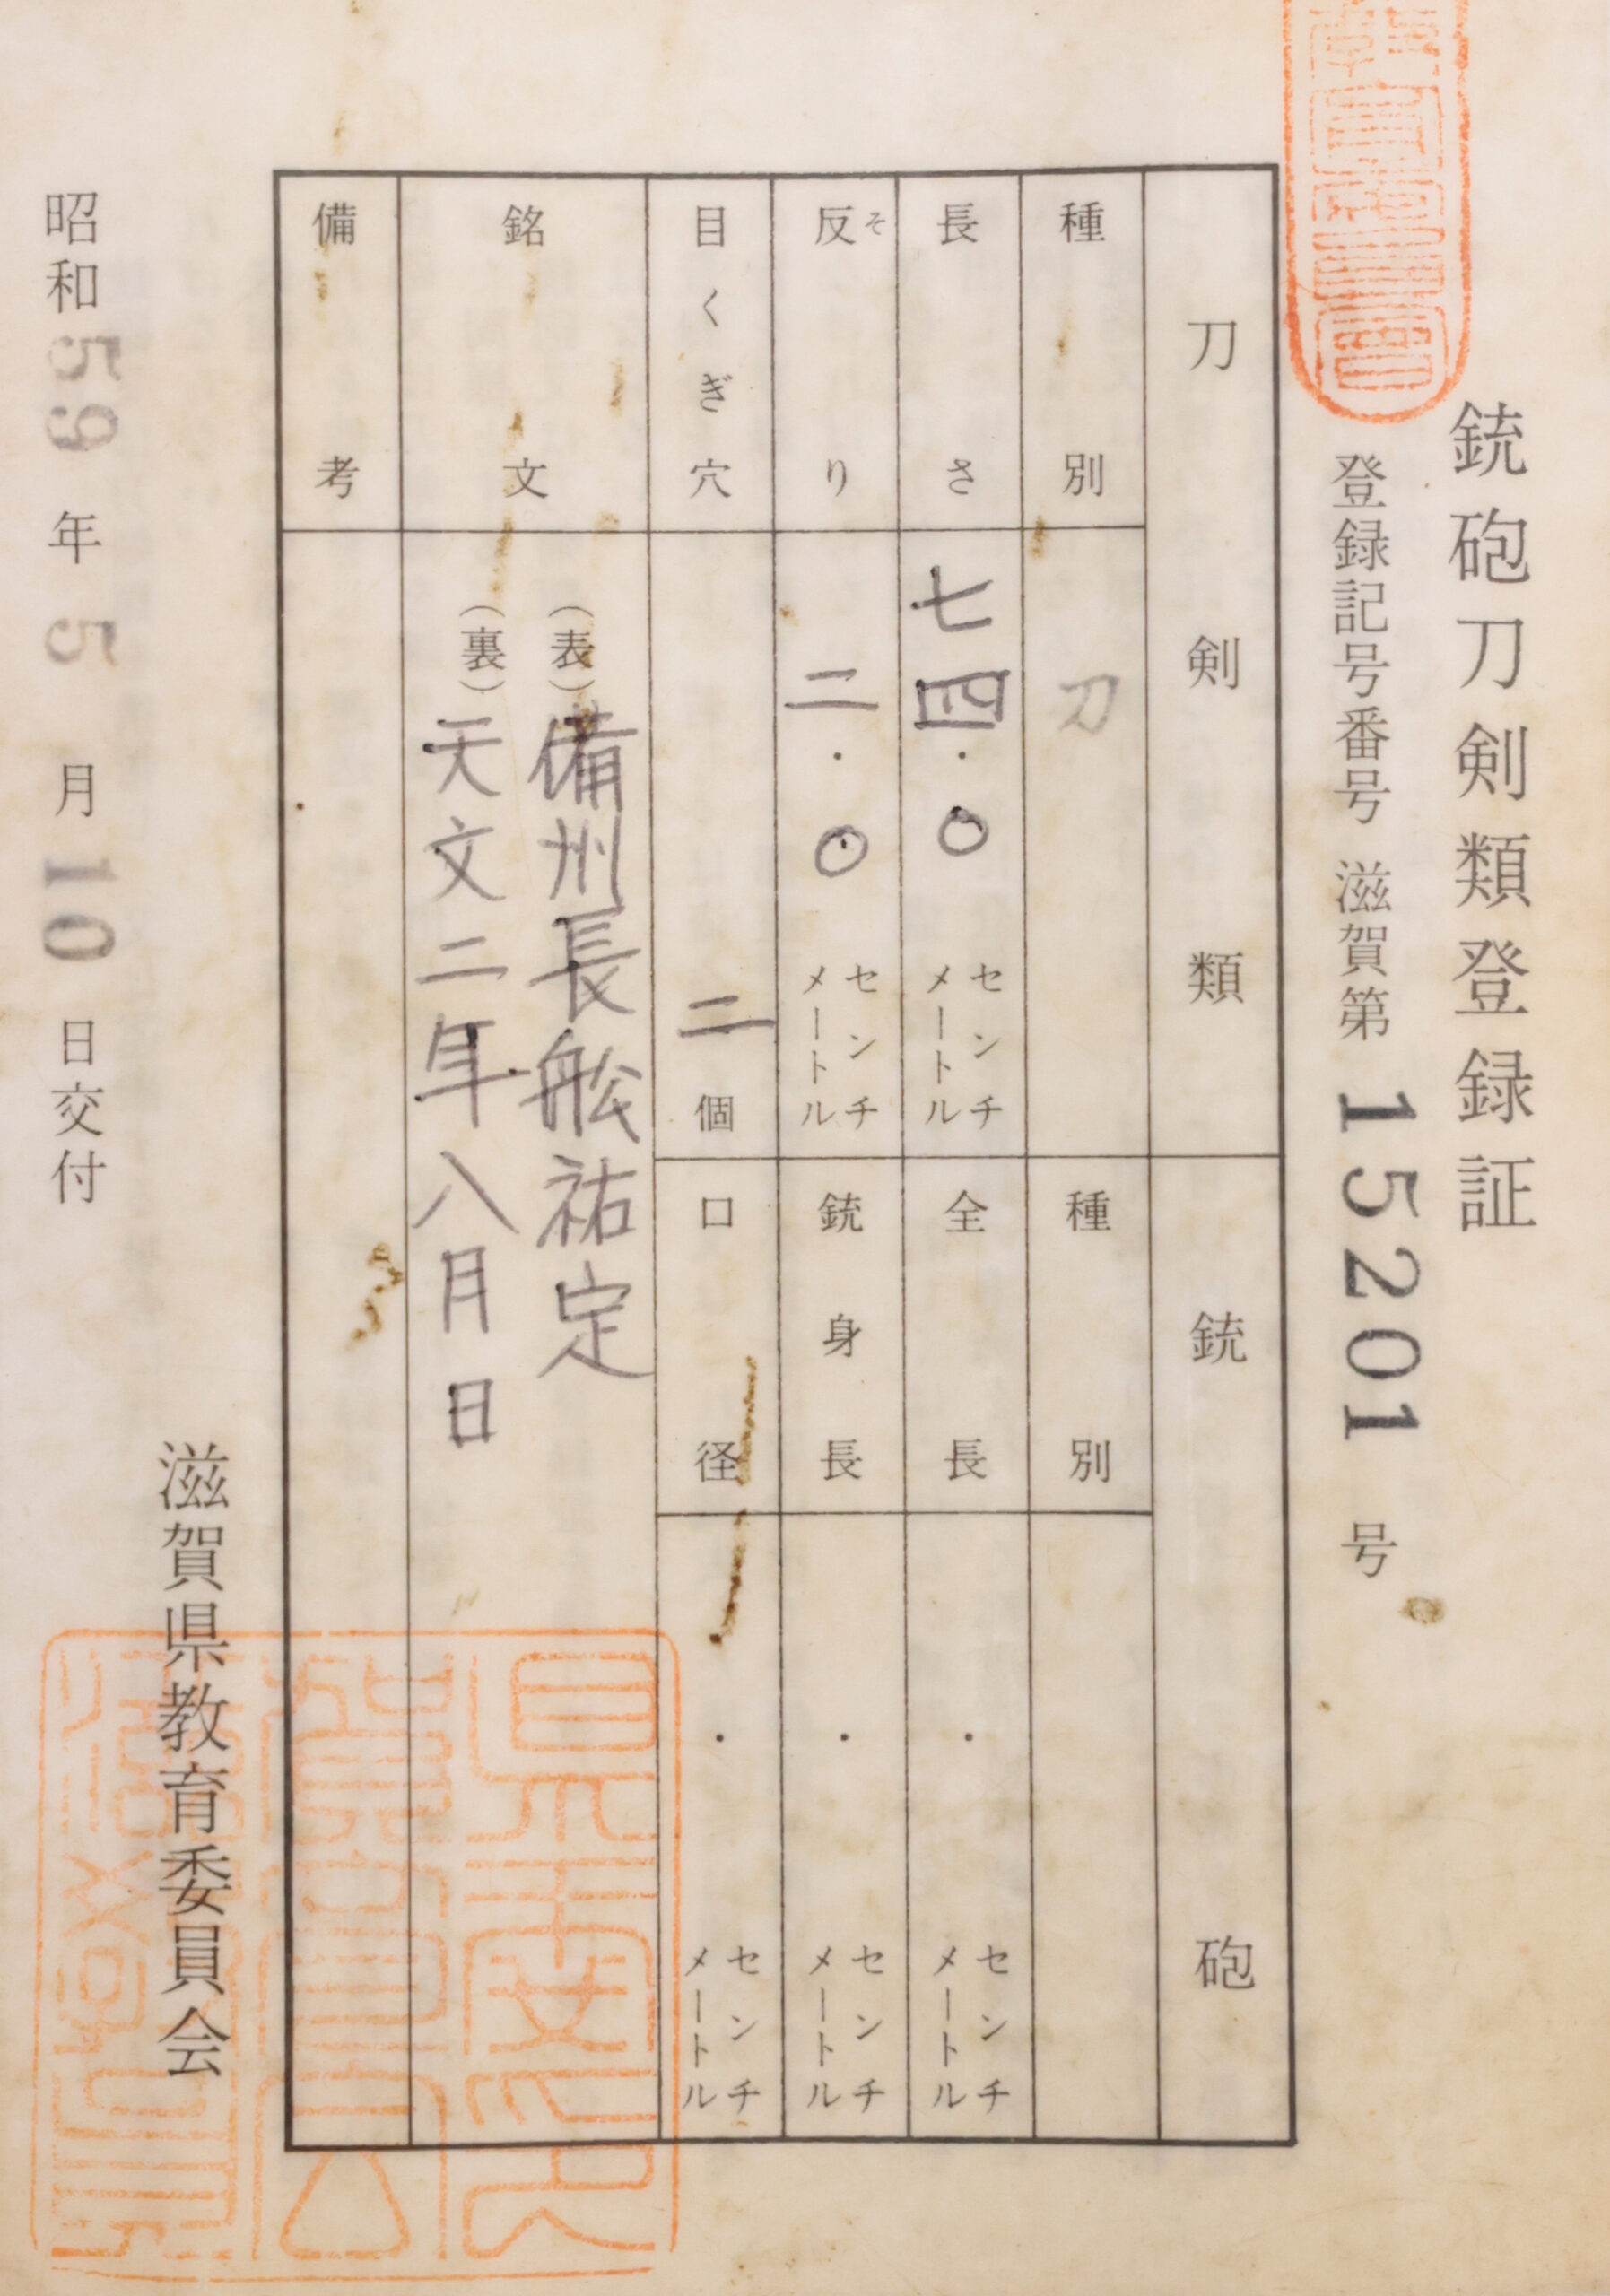 銃砲刀剣類登録証
登録記号番号 滋賀第 15201 号
刀剣類
銃砲
種別 刀
長さ 七四.〇 センチメートル
反り そ 二.〇 センチメートル
目くぎ穴 二 個
種別
全長 . センチメートル
銃身長 . センチメートル
口径 . センチメートル
銘文 (表)備州長舩祐定
(裏)天文二年八月日
備考
滋賀県教育委員会
昭和59年5月10日交付